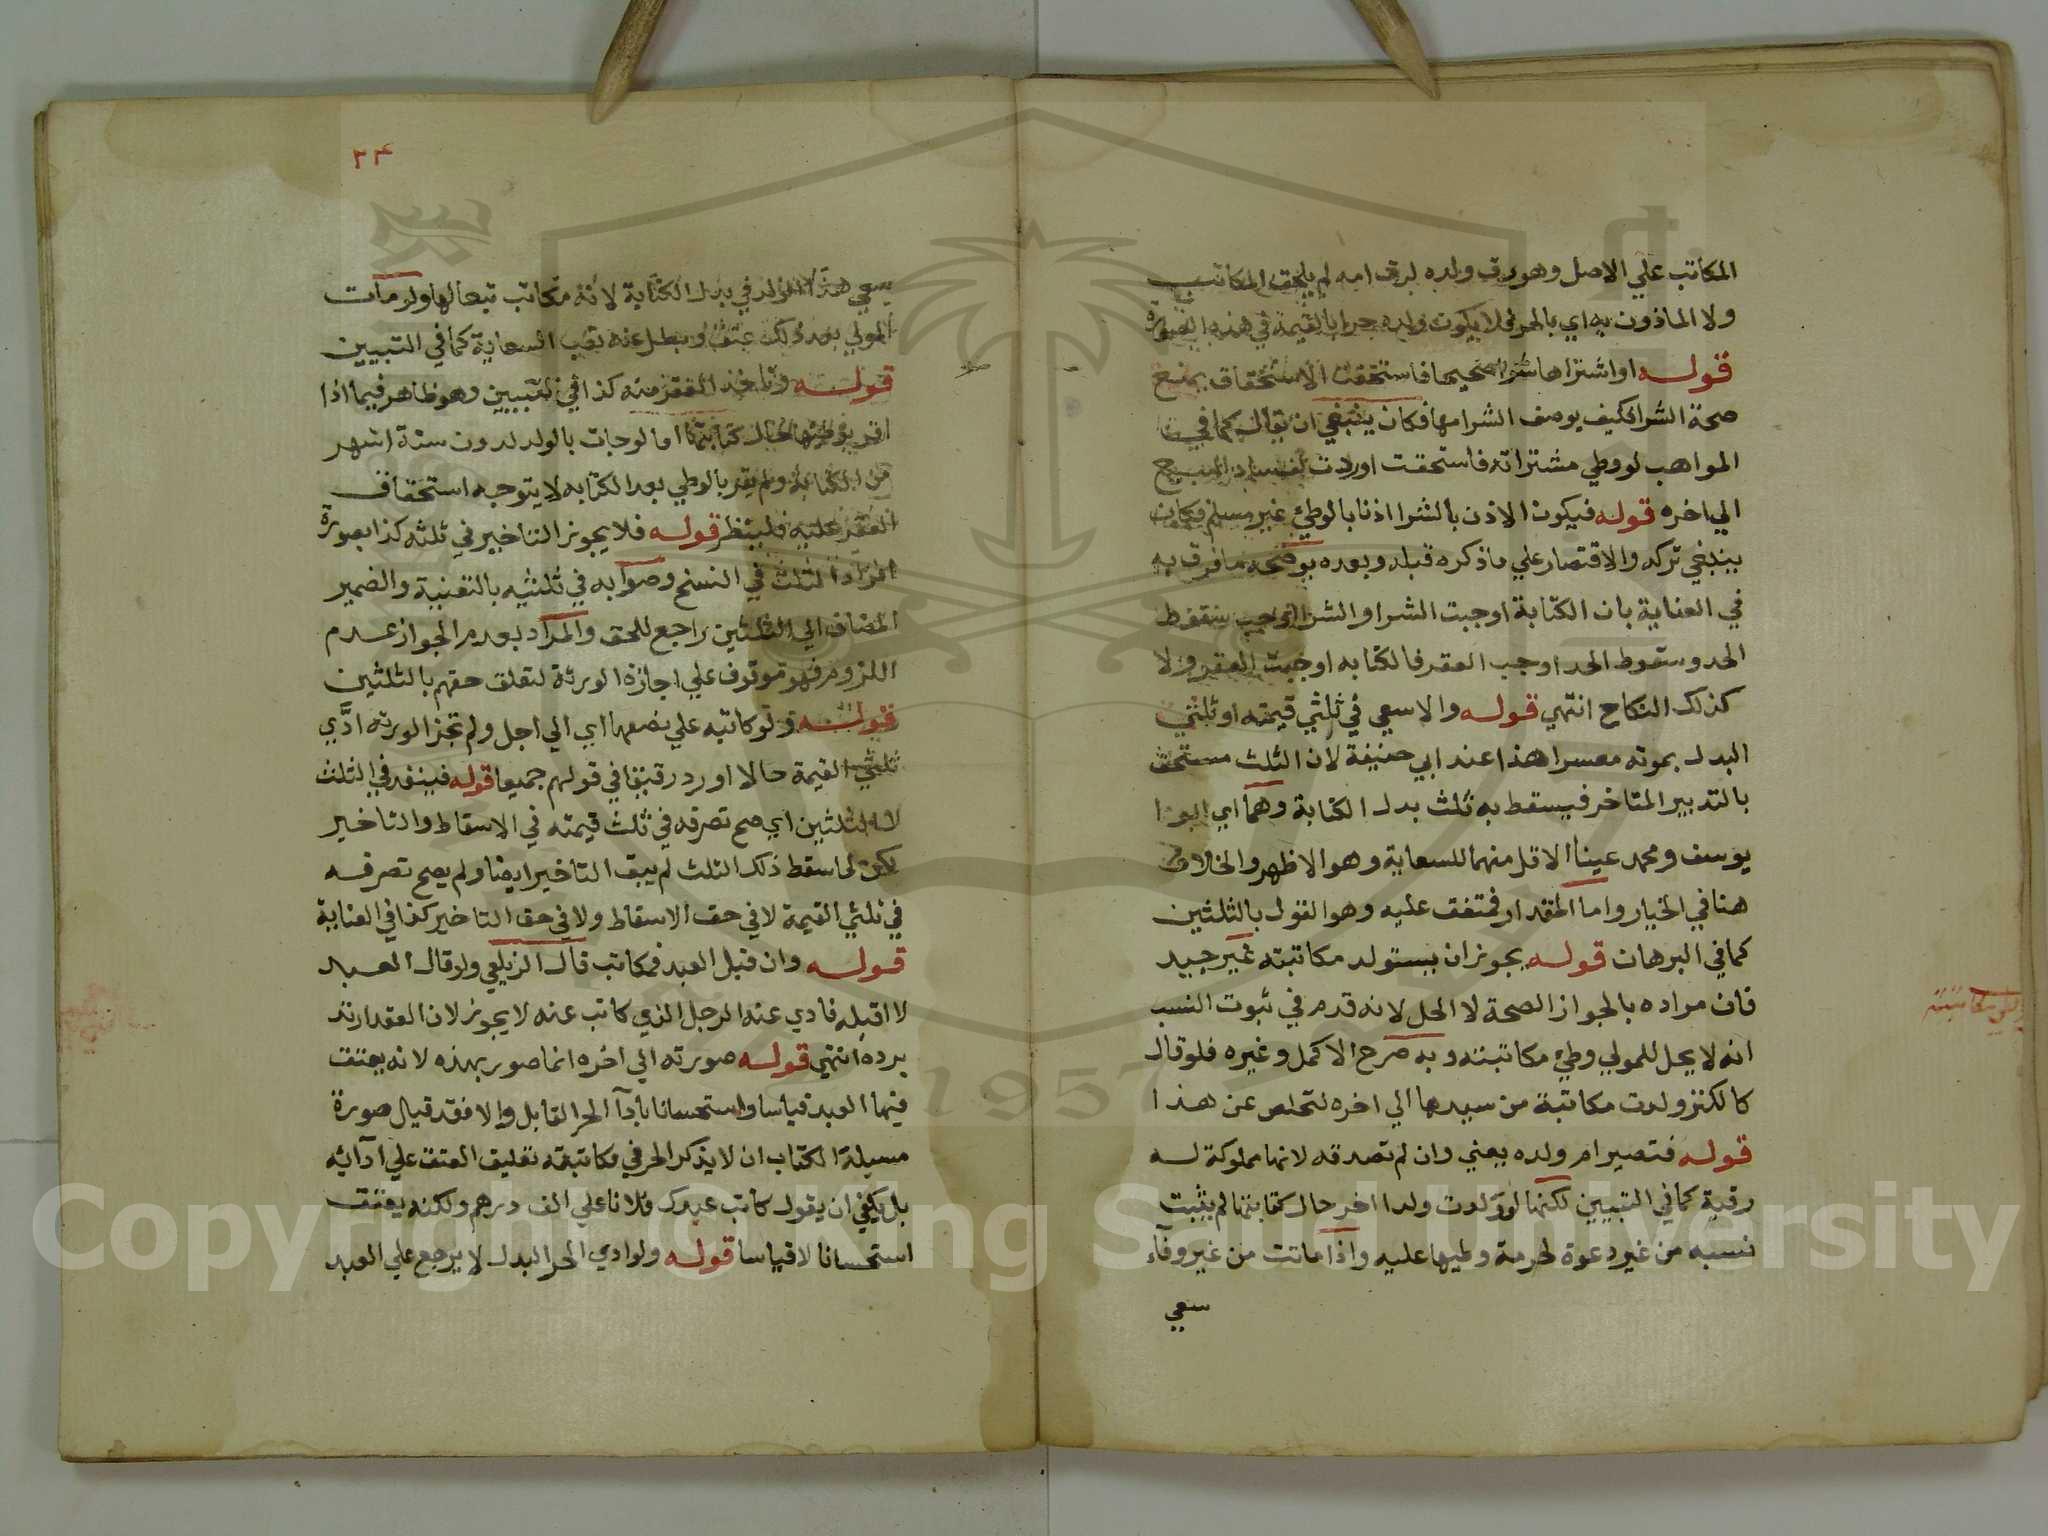 المكاتب علي الاصل وهو رق ولده لرق امه لم يلحق المكاتب
ولا الماذون به اي بالحر فلا يكون ولده حرا بالقيمة في هذه الصورة
قوله او اشتراها شراء صحيحا فاستحقت الاستحقاق يمنع
صحة الشرا فكيف يوصف الشرا مها فكان ينبغي ان يقال كما في
المواهب لو وطي مشتراته فاستحقت او ردت بفساد البيع
الي اخره قوله فيكون الاذن بالشرا اذنا بالوطئ غير مسلم فكان
ينبغي تركه والاقتصار علي ما ذكره قبله وبعده يوضحه ما فرق به
في العناية بان الكتابة اوجبت الشرا والشرا اوجب سقوط
الحد وسقوط الحد اوجب العقر فالكتابه اوجبت العقر ولا
كذلك النكاح انتهي قوله والا سعي في ثلثي قيمته او ثلثي
البدل بموته معسرا هذا عند ابي حنيفة لان الثلث مستحق
بالتدبير المتاخر فيسقط به ثلث بدل الكتابة وهما اي ابوا
يوسف ومحمد عينا الاقل منهما للسعاية وهو الاظهر والخلاف
هنا في الخيار واما المقدار فمتفق عليه وهو القول بالثلثين
كما في البرهان قوله يجوز ان يستولد مكاتبته غير جيد
فان مراده بالجواز الصحة لا الحل لانه قدم في ثبوت النسب
انه لا يحل للمولي وطئ مكاتبته وبه صرح الاكمل وغيره فلو قال
كالكنز ولدت مكاتبة من سيدها الي اخره لتخلص عن هذا
قوله فتصير ام ولده يعني وان لم تصدقه لانها مملوكة له
رقبة كما في التبيين لكنها لو ولدت ولدا اخر حال كتابتها لم يثبت
نسبه من غير دعوة لحرمة وطيها عليه واذا ماتت من غير وفآء
سعي
٢٤
يسعي هذا الولد في بدل الكتابة لانه مكاتب تبعا لها ولو مات
المولي بعد ذلك عتق وبطل عنه السعاية كما في التبيين
قوله وتاخذ العقر منه كذا في التبيين وهو ظاهر فيما اذا
اقر بوطئها حال كتابتها اما لو جات بالولد لدون ستة اشهر
من الكتابة ولم يقر بالوطي بعد الكتابه لا يتوجه استحقاق
العقر عليه فلينظر قوله فلا يجوز التاخير في ثلثه كذا بصورة
المراد الثلث في النسخ وصوابه في ثلثيه بالتثنية والضمير
المضاف الي الثلثين راجع للحق والمراد بعدم الجواز عدم
اللزوم فهو موقوف علي اجازة الورثة لتعلق حقهم بالثلثين
قوله ولو كاتبه علي نصفها اي الي اجل ولم تجز الورثه ادَّي
ثلثي القيمة حالا او رد رقيقا في قولهم جميعا قوله فينفد في الثلث
لا الثلثين اي صح تصرفه في ثلث قيمته في الاسقاط والتاخير
لكن لما سقط ذلك الثلث لم يبق التاخير ايضا ولم يصح تصرفه
في ثلثي القيمة لا في حق الاسقاط ولا في حق التاخير كذا في العناية
قوله وان قبل العبد فمكاتب قال الزيلعي ولو قال العبد
لا اقبله فادي عنه الرجل الذي كاتب عنه لا يجوز لان العقد ارتد
برده انتهي قوله صورته الي اخره انما صور بهذه لانه يعتق
فيها العبد قياسا واستحسانا بادآ الحر القابل والا فقد قيل صورة
مسيلة الكتاب ان لا يذكر الحر في مكاتبته تعليق العتق علي آدائه
بل يكفي ان يقول كاتب عبدك فلانا علي الف درهم ولكنه يعتق
استحسانا لا قياسا قوله ولو ادي الحر البدل لا يرجع علي العبد
Copyright © King Saud University
1957